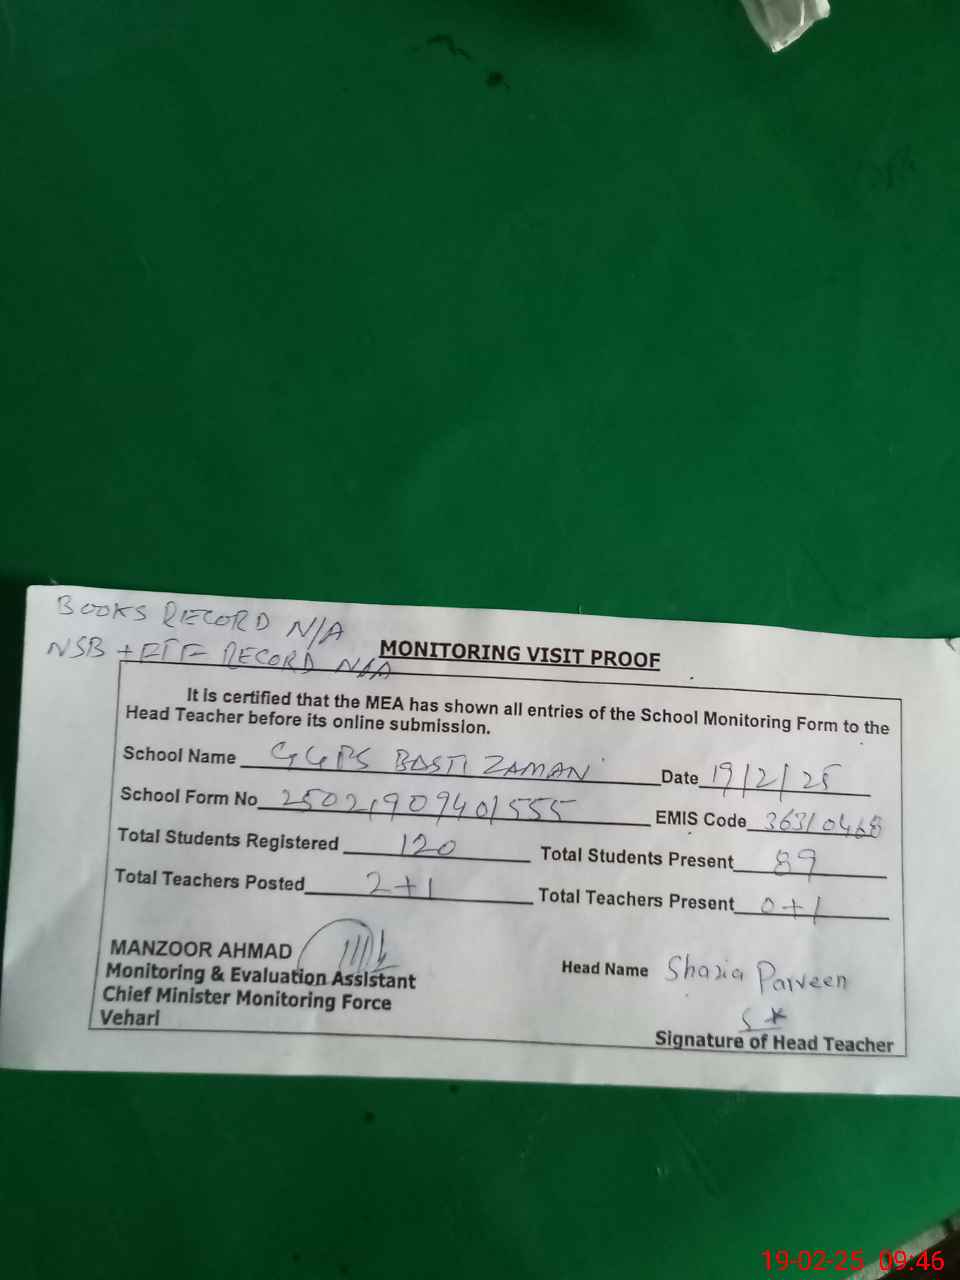 BOOKS RECORD N/A
NSB + FTF RECORD N/A
MONITORING VISIT PROOF
It is certified that the MEA has shown all entries of the School Monitoring Form to the
Head Teacher before its online submission.
School Name GGPS BASTI ZAMAN Date 19/2/25
School Form No 25021909401555 EMIS Code 36310468
Total Students Registered 120 Total Students Present 89
Total Teachers Posted 2+1 Total Teachers Present 0+1
MANZOOR AHMAD
Monitoring & Evaluation Assistant
Chief Minister Monitoring Force
Vehari
Head Name Shazia Parveen
Signature of Head Teacher
19-02-25 09:46